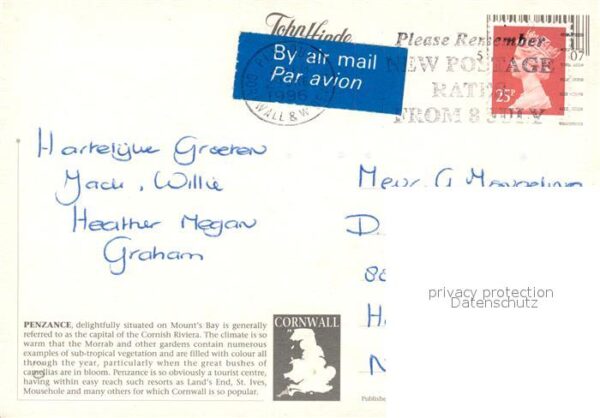 John Hinde
By air mail
Par avion
Please Remember
NEW POSTAGE
RATE
FROM 8 JULY
1996
25P
5
07
Hartelijke Groeten
Jack, Willie
Heather Megan
Graham
Mevr. G
D
88
H
N
privacy protection
Datenschutz
PENZANCE, delightfully situated on Mount's Bay is generally
referred to as the capital of the Cornish Riviera. The climate is so
warm that the Morrab and other gardens contain numerous
examples of sub-tropical vegetation and are filled with colour all
through the year, particularly when the great bushes of
camellias are in bloom. Penzance is so obviously a tourist centre,
having within easy reach such resorts as Land's End, St. Ives,
Mousehole and many others for which Cornwall is so popular.
CORNWALL
Publishe